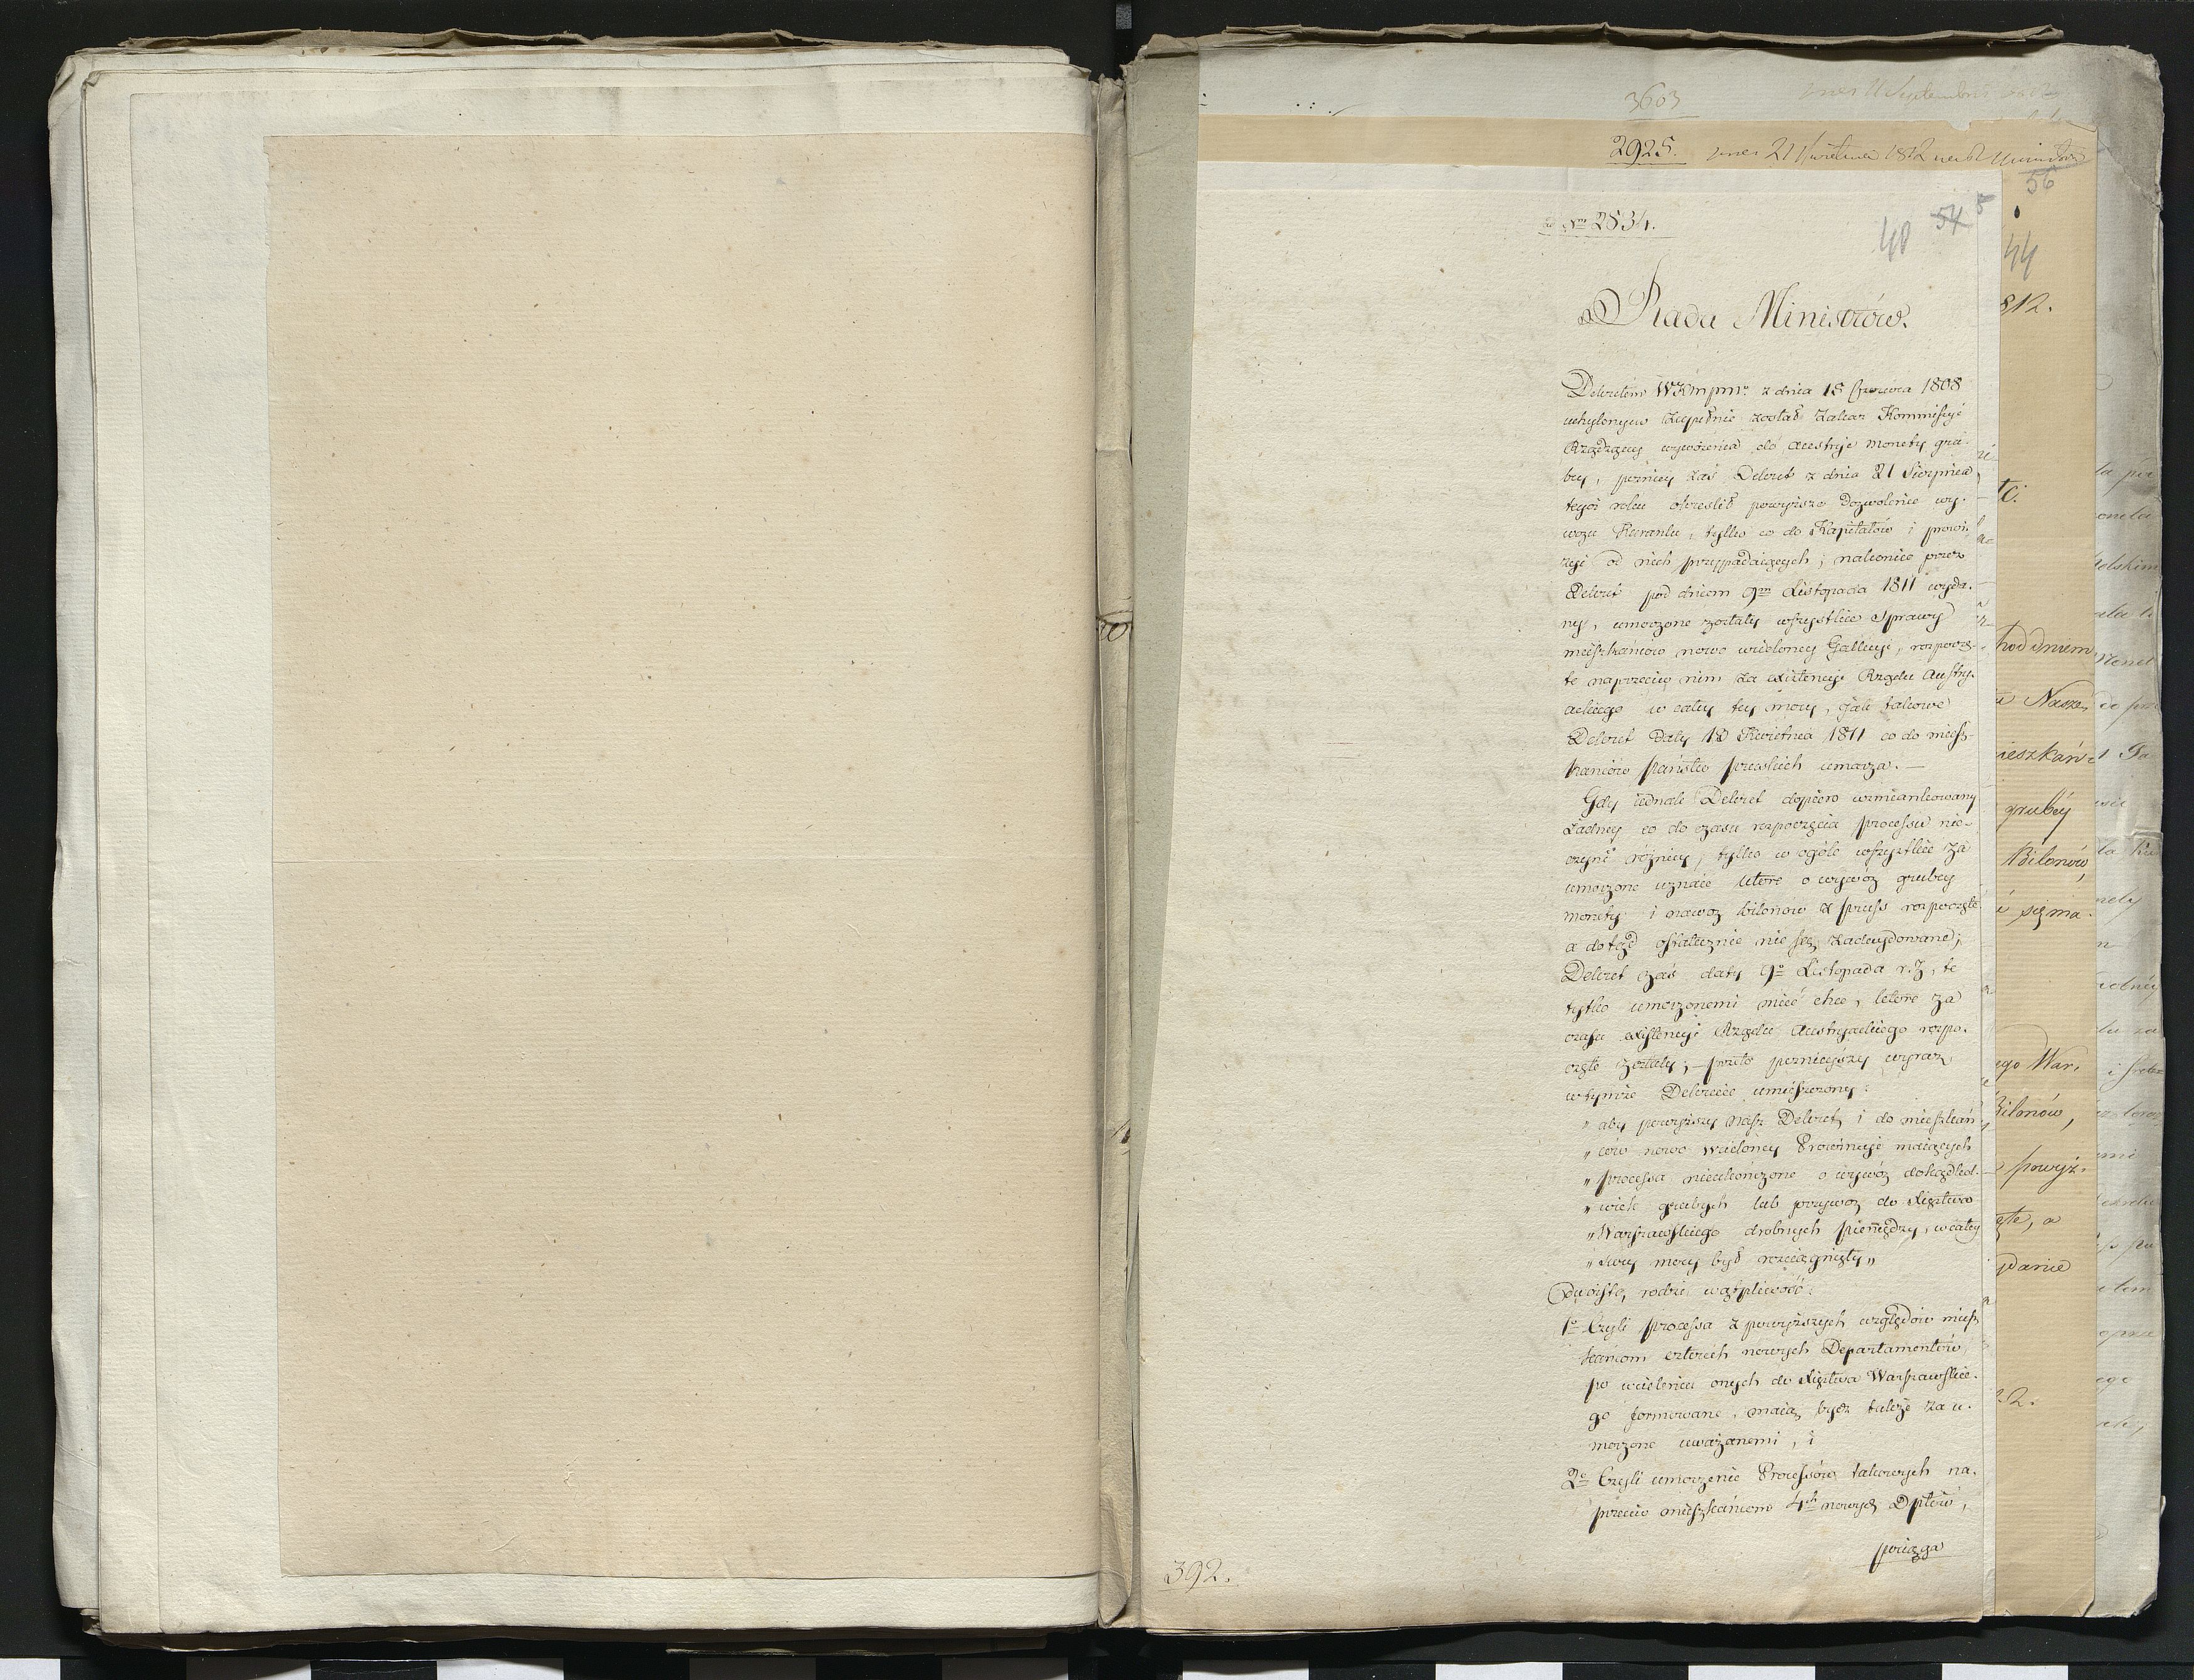 3603
2925.
56
44
812.
N 2834.
40 54
Rada Ministrów.
Dekretem WKmpm. z dnia 18 Czerwca 1808
uchylonym zupełnie został zakaz Kommissyi
Rządzącey wywożenia do Austryi monety gru-
bey, poźniey zaś Dekret z dnia 21 Sierpnia
tegoż roku określił powyższe Dozwolenie wy-
wozu Kurantu, tylko co do Kapitałów i prowi-
zyi od nich przypadaiących; nakoniec przez
Dekret pod dniem 9m Listopada 1811 wyda-
ny, umorzone zostały wszystkie sprawy
mieszkańców nowo wcieloney Gallicyi, rozpoczę-
te naprzeciw nim za existencyi Rządu Austry-
ackiego w całey tey mocy, jak takowe
Dekret Daty 18 Kwietnia 1811 co do miesz-
kańców państw pruskich umarza. —
Gdy iednak Dekret dopiero wzmiankowany
żadney co do czasu rozpoczęcia processu nie-
czyni różnicy, tylko w ogóle wszystkie za
umorzone uznaie które o wywóz grubey
monety i nawoz bilonów z pruss rozpoczęte
a dotąd ostatecznie nie są zadecydowane;
Dekret zaś daty 9o Listopada r. z, te
tylko umorzonemi mieć chce, które za
czasu existencyi Rządu Austryackiego rozpo-
częte zostały; — przeto poźnieyszy wyraz
w tymże Dekrecie umieszczony:
„ aby powyższy nasz Dekret, i do mieszkań-
„ ców nowo wcieloney Prowincyi maiących
„ processa nieukończone o wywóz dokądkol-
„ wiek grubych lub przywoz do Xięztwa
„ Warszawskiego drobnych pieniędzy, w całey
„ swey mocy był rozciągnięty „
Dwoistą rodzi wątpliwość:
1o Czyli processa z powyższych względów miesz-
kańcom czterech nowych Departamentów
po wcieleniu onych do Xięztwa Warszawskie-
go formowane, maią bydz także za u-
morzone uważanemi, i
2o Czyli umorzenie Processów takowych na-
przeciw mieszkańcom 4ch nowych Dptów,
pociąga
392.
hod dniem
Nasze
ieszkań-
grubéy
Bilonów,
się ma
ego War-
Bilonów,
powyż-